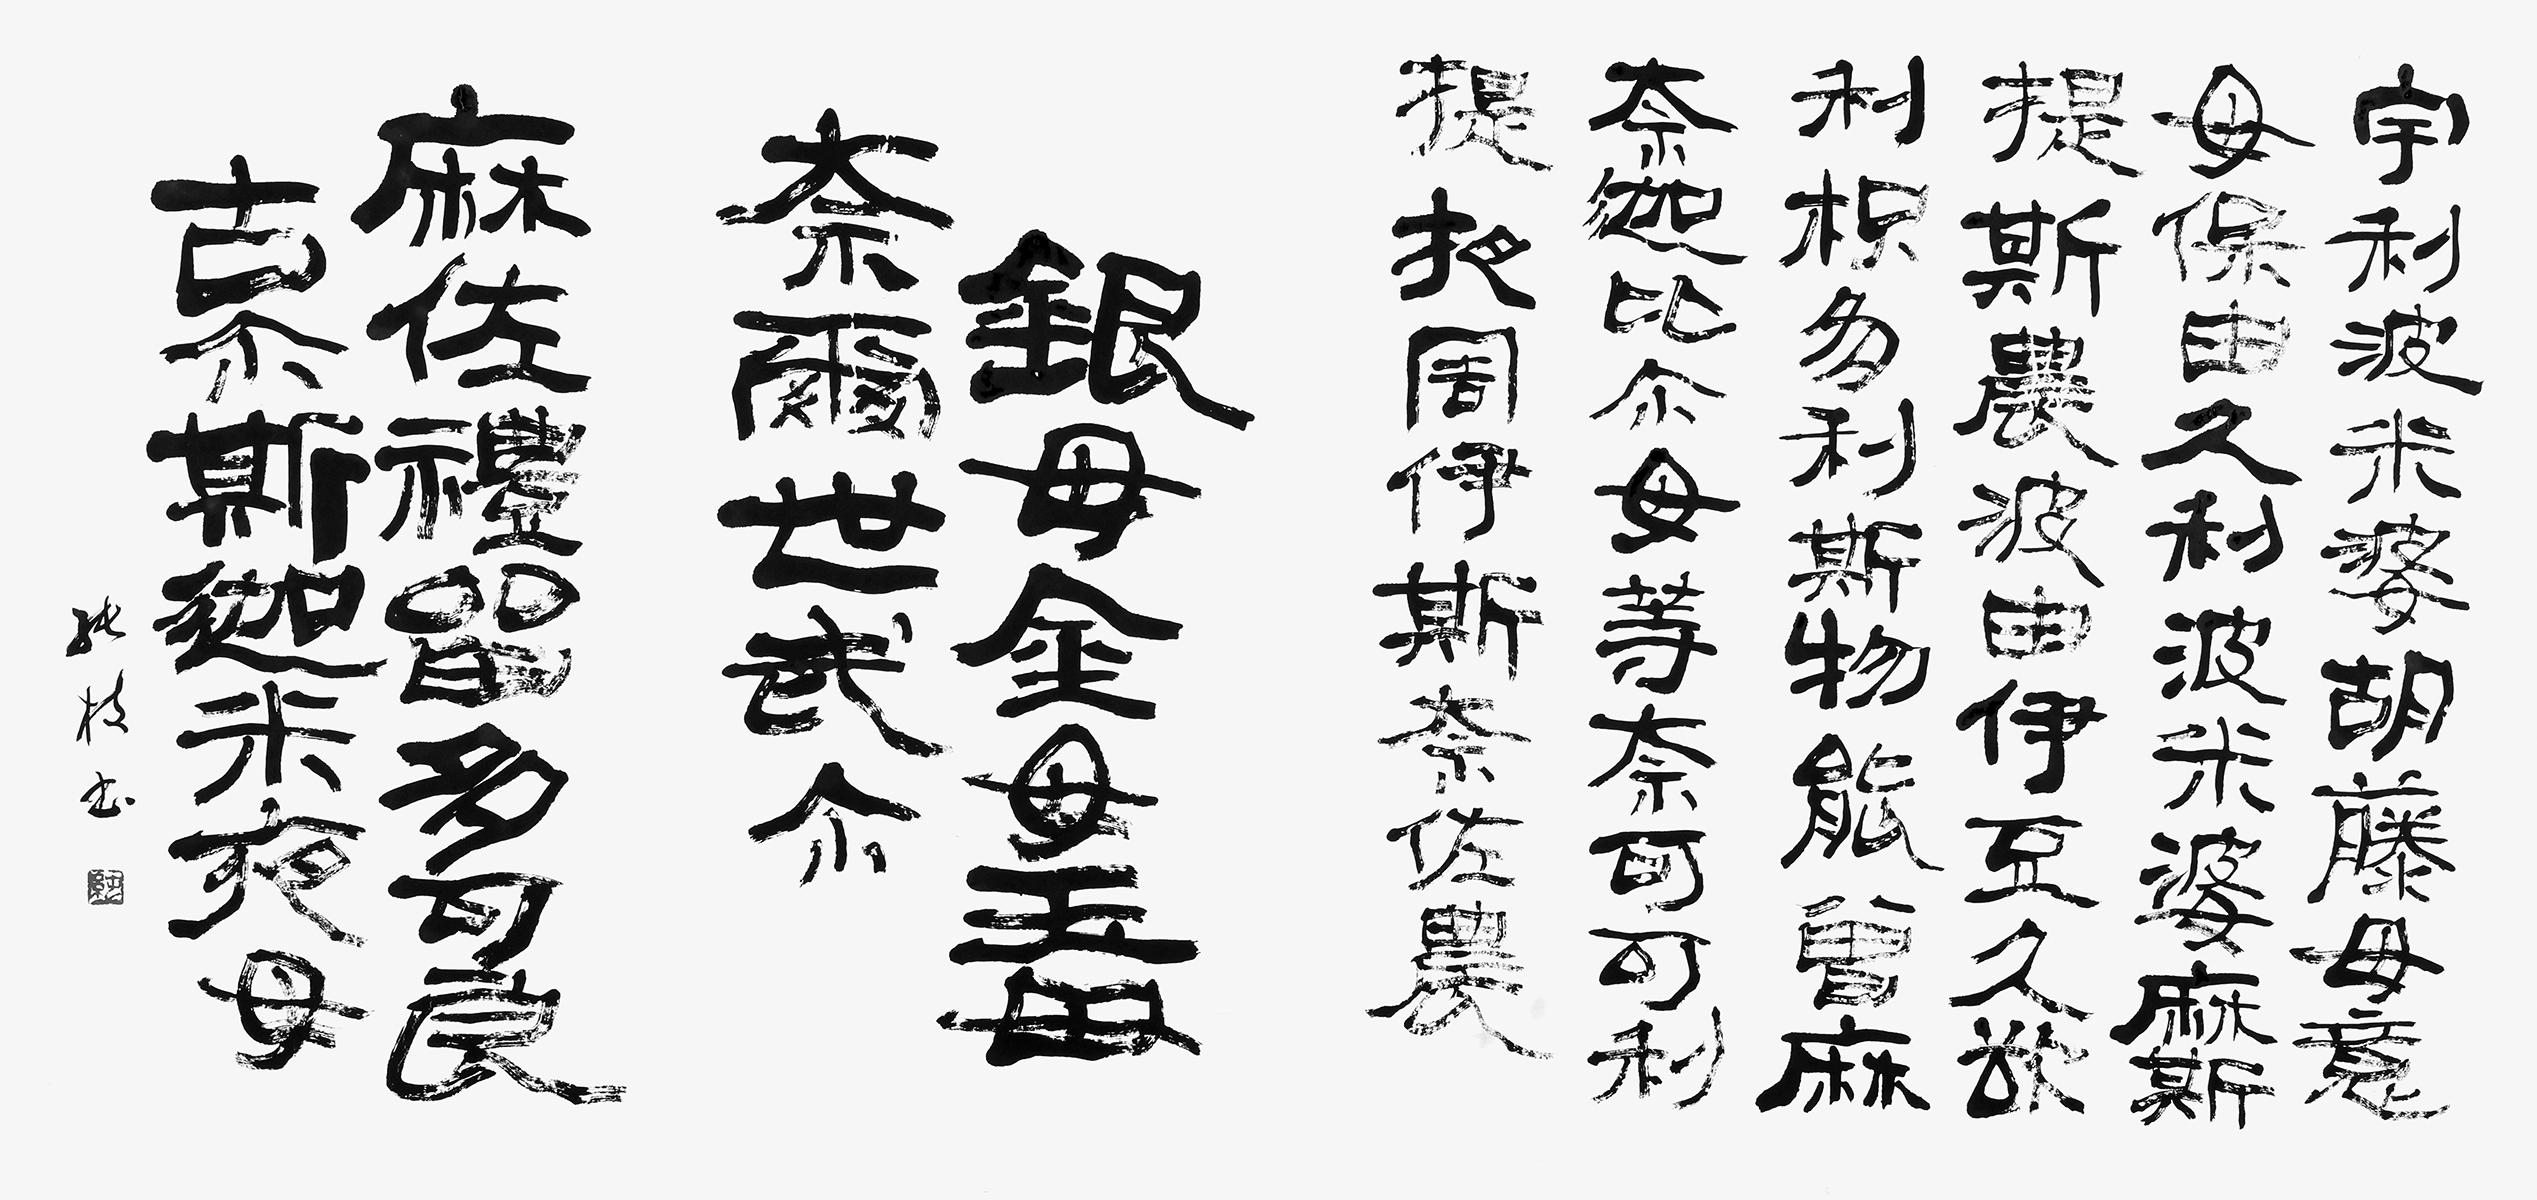 宇利波米婆胡藤母意
母保由久利波米婆麻斯
提斯農波由伊豆久欲
利枳多利斯物能曾麻
奈迦比尓母等奈可可利
提夜周伊斯奈佐農
銀母金母玉母
奈爾世武尓
麻佐禮留多可良
古尓斯迦米夜母
枝書